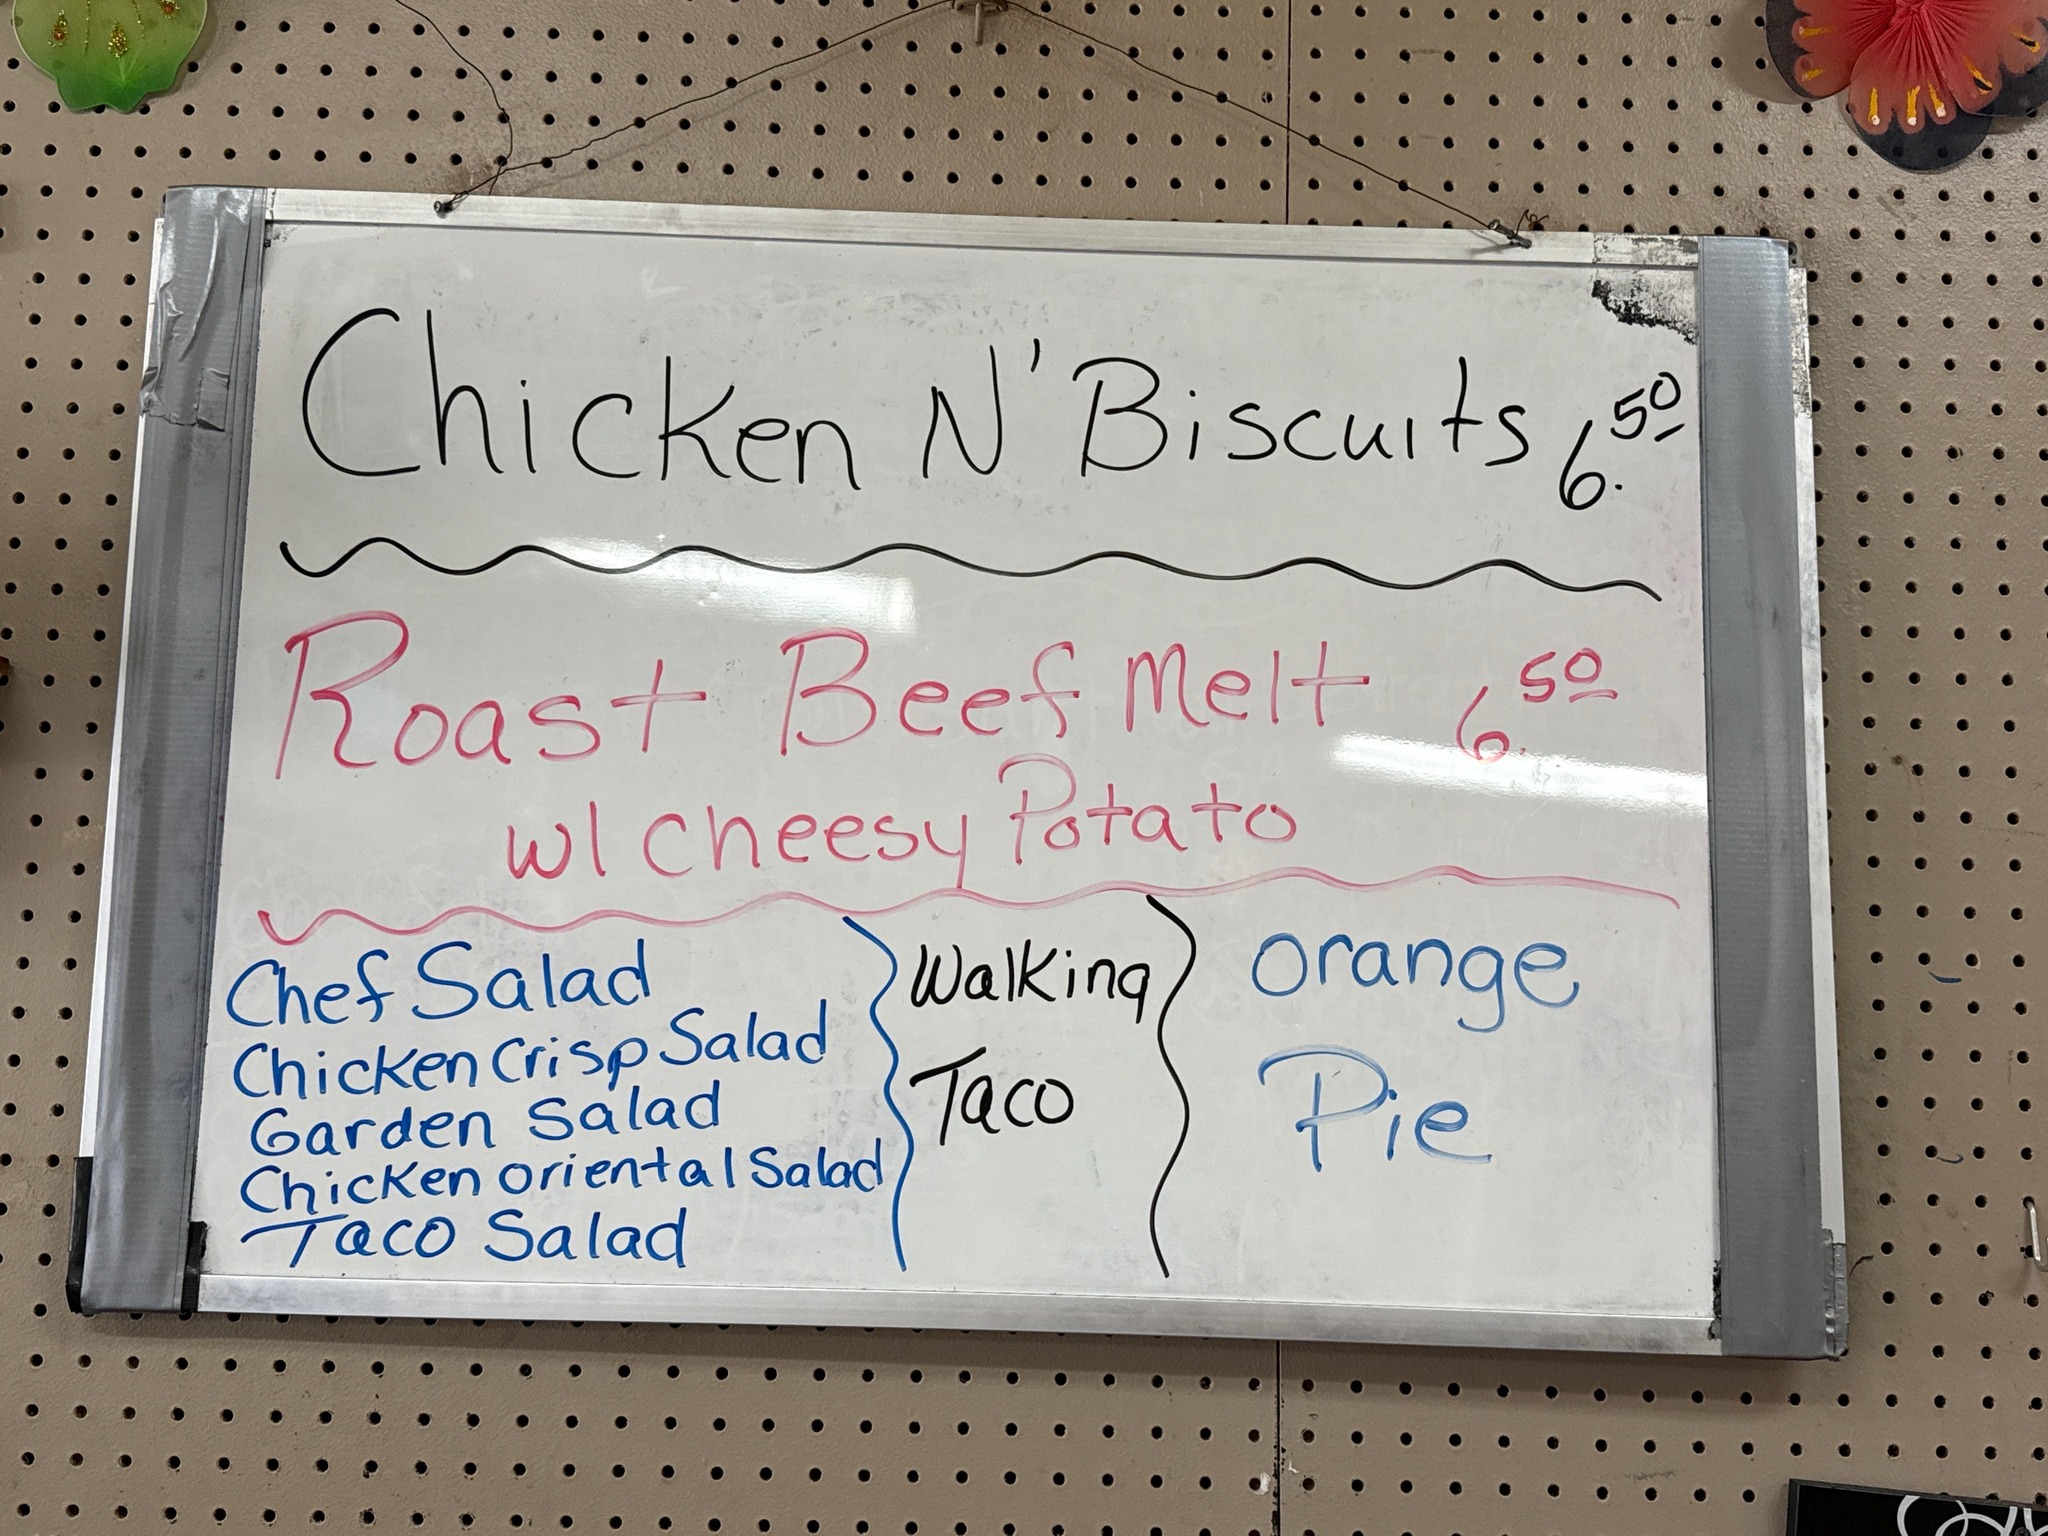 Chicken N' Biscuits 6.50
Roast Beef Melt 6.50
w/ Cheesy Potato
Chef Salad
Chicken Crisp Salad
Garden Salad
Chicken oriental Salad
Taco Salad
Walking
Taco
orange
Pie